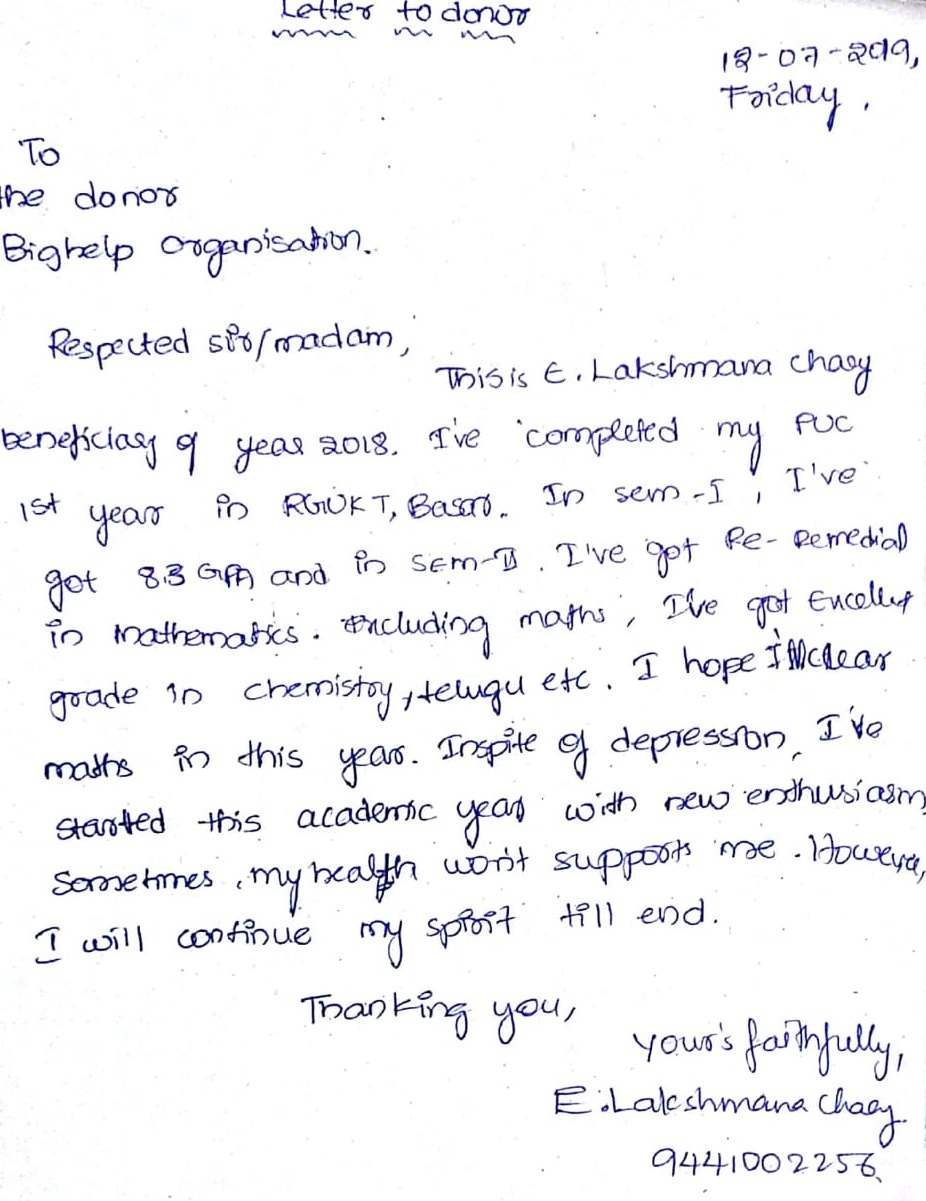 Letter to donor
12-07-2019,
Friday,
To
the donor
Bighelp organisation.
Respected sir/madam,
This is E. Lakshmana chary
beneficiary of year 2018. I've completed my PUC
1st year in RGUKT, Basar. In sem-I, I've
got 8.3 GPA and in SEM-II. I've got Re-Remedial
in Mathematics. Encluding maths, I've got Encellent
grade in chemistry, telugu etc. I hope I'll clear
maths in this year. Inspite of depression, I've
started this academic year with new enthusiasm
Sometimes, my health won't supports me. However,
I will continue my spirit till end.
Thanking you,
your's faithfully,
E. Lakshmana chary
9441002256